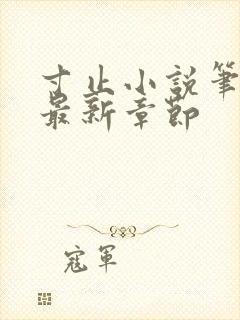 寸止小說筆
最新章節
寇軍